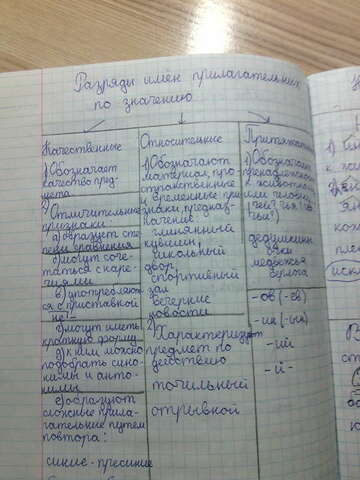 Разряды имён прилагательных
по значению
Качественные
1) Обозначает
качество пред-
мета
2) Отличительные
признаки
а) образует сте-
пени сравнения
б) могут соче-
таться с наре-
чиями
в) употребляют-
ся с приставкой
не!-
г) могут иметь
краткую форму
д) к ним можно
подобрать сино-
нимы и анто-
нимы
е) образуют
сложные прила-
гательные путём
повтора:
синие-пресиние
Относительные
1) Обозначают
материал, про-
странственные
и временные при-
знаки, предназ-
начение
глиняный
кувшин,
школьный
двор,
спортивный
зал
вечерние
новости
2) Характеризует
предмет по
действию
точильный
отрывной
Притяжательные
1) Обозначает
принадлежность
к животному
или человеку
(чей? чья?
чьи?)
дедушкины
очки
медвежья
берлога
-ов (-ев)
-ин (-ын)
-ий
-й-